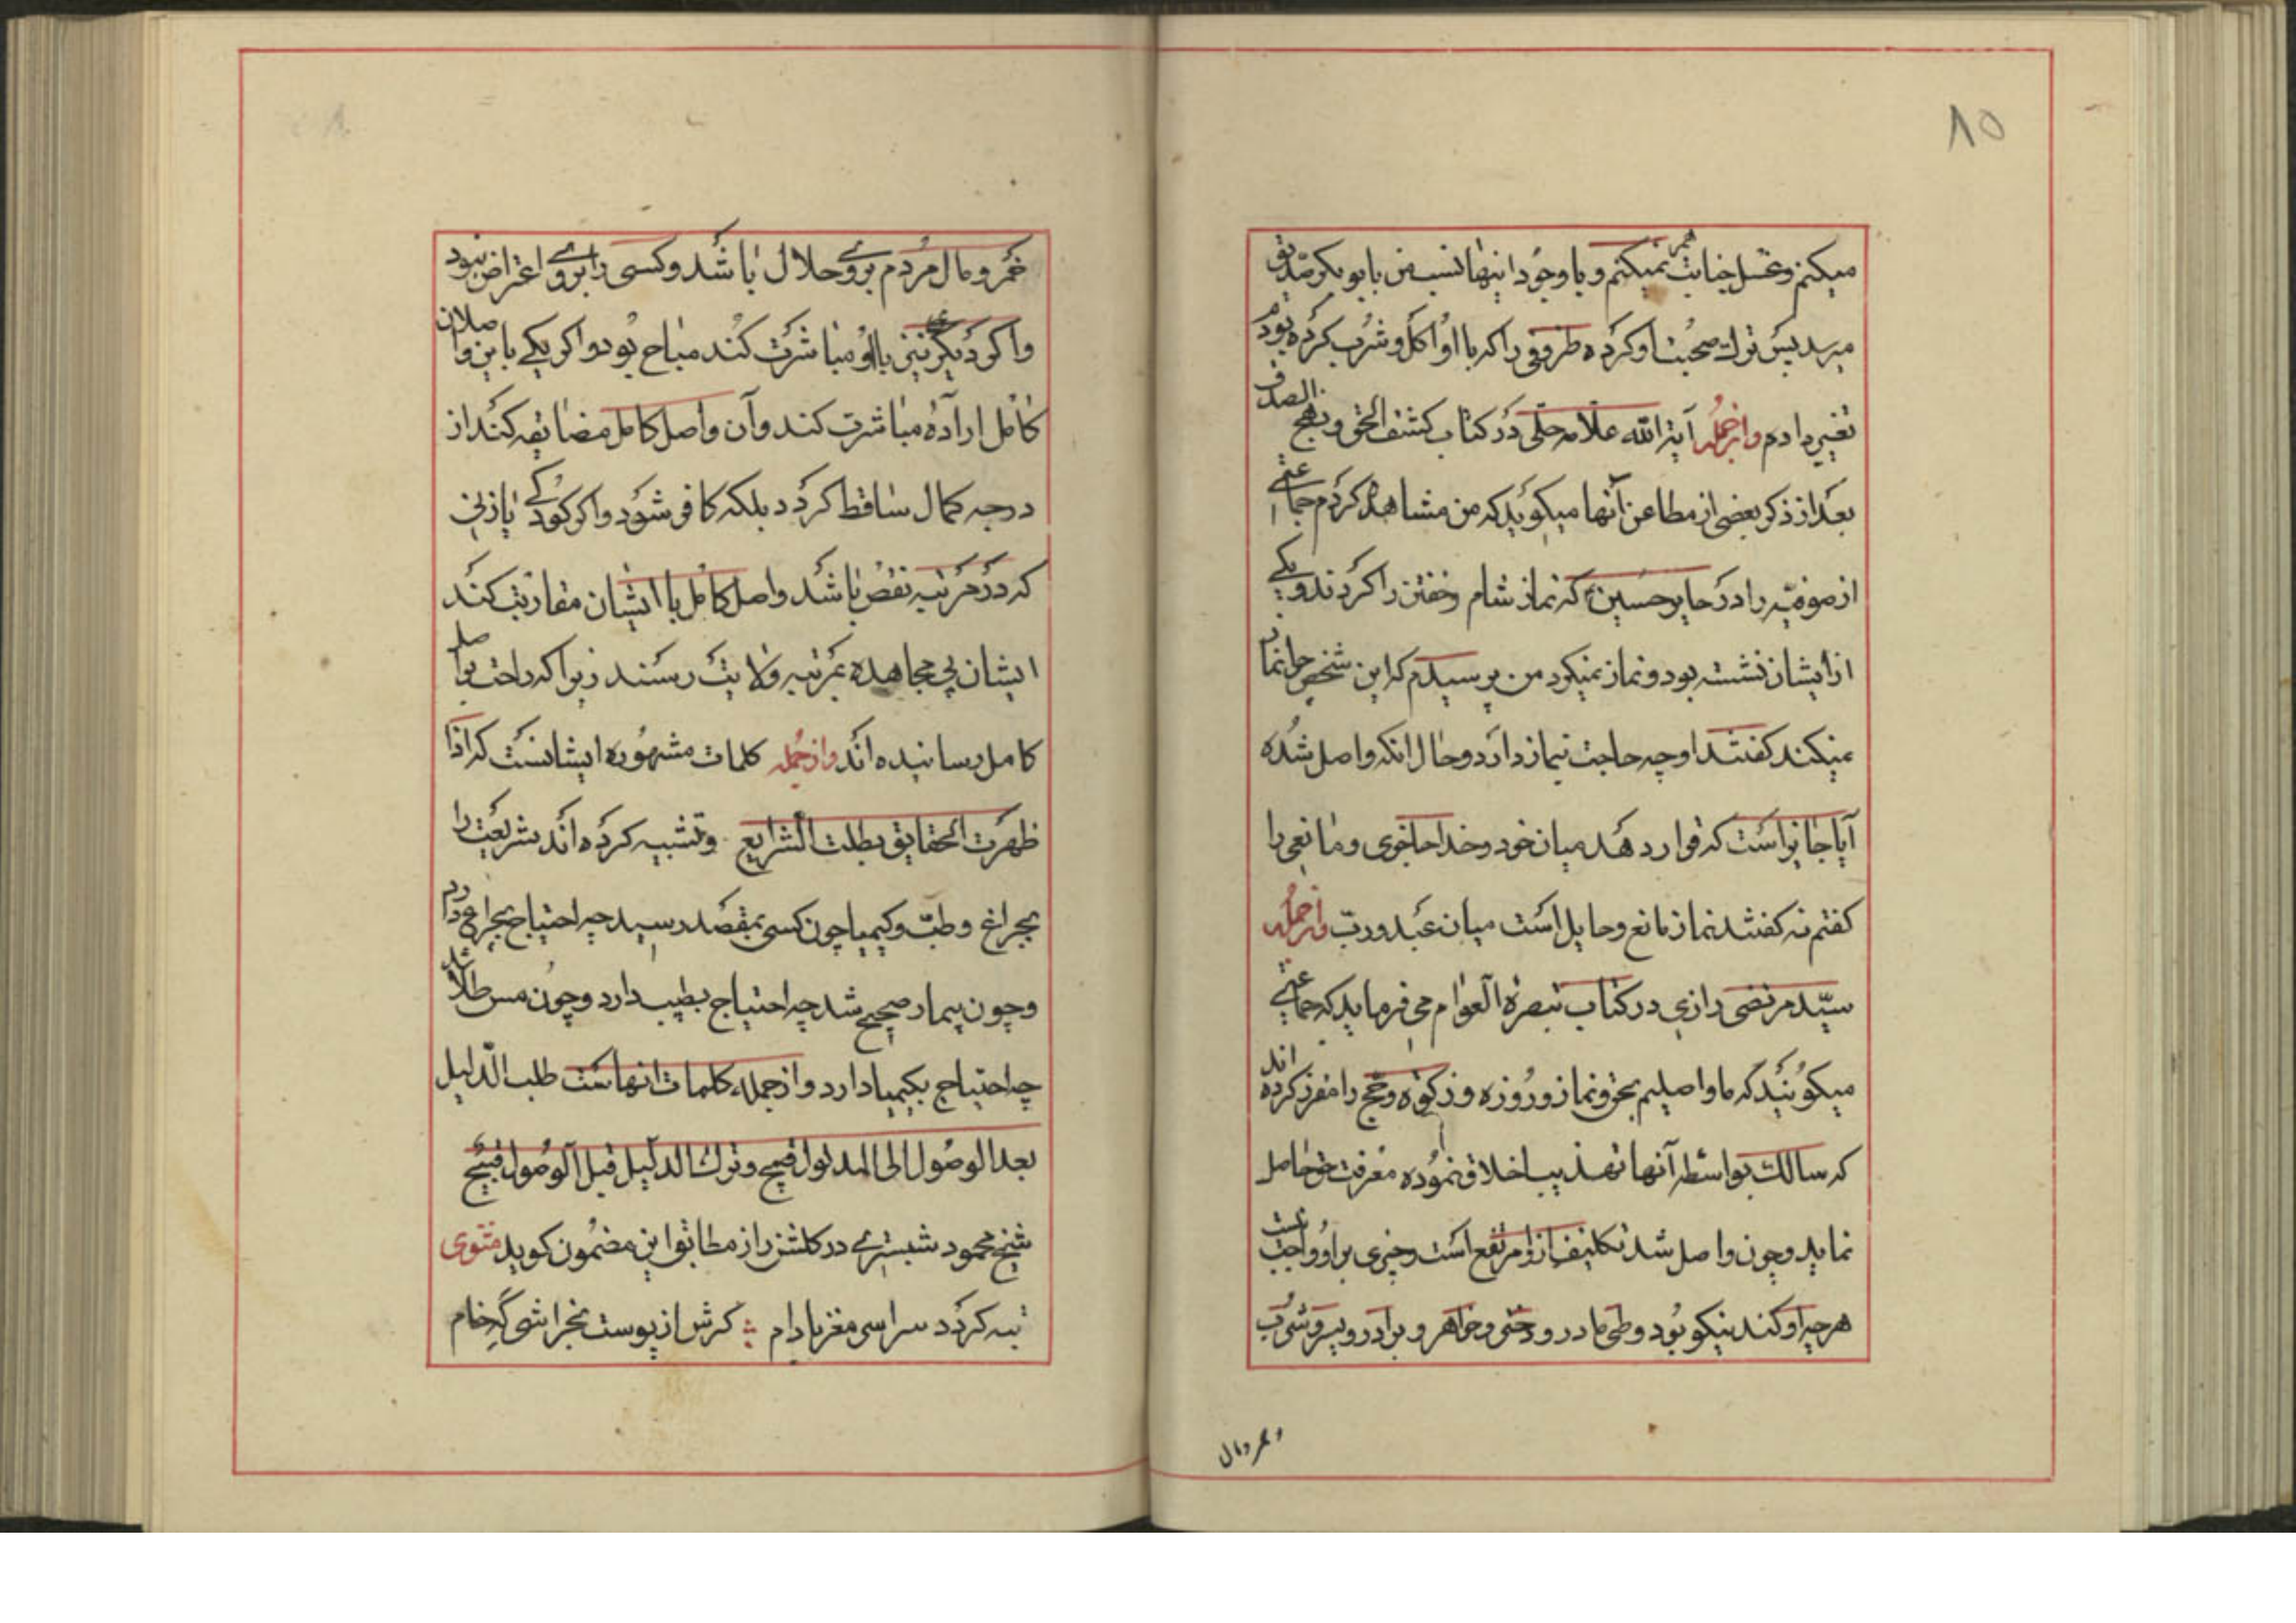 ۸۵
میکنم و غسل جنابت هم نمیکنم و با وجود اینها نسب من بابوبکر صدیق
میرسد پس ترک صحبت او کرده ظروفی را که با او اکل و شرب کرده بودم
تغییر دادم وازجمله آیة الله علامه حلی در کتاب کشف الحق و نهج الصدق
بعد از ذکر بعضی از مطاعن آنها میگوید که من مشاهده کردم جماعتی
از صوفیه را در حایر حسین که نماز شام و خفتن را کردند و یکی
از ایشان نشسته بود و نماز نمیکرد من پرسیدم که این شخص چرا نماز
نمیکند گفتند او چه حاجت بنماز دارد و حال انکه واصل شده
آیا جایز است که قرار دهد میان خود و خدا حاجزی و مانعی را
گفتم نه گفتند نماز مانع و حایل است میان عبد و رب وازجمله
سید مرتضی رازی در کتاب تبصرة العوام می فرماید که جماعتی
میگویند که ما واصلیم بحق و نماز و روزه و زکوة و حج را مقرر کرده اند
که سالک بواسطه آنها تهذیب اخلاق نموده معرفت حق حاصل
نماید و چون واصل شد تکلیف از او مرتفع است و چیزی بر او واجب نیست
هرچه او کند نیکو بود و وطی مادر و دختر و خواهر و برادر و پسر و شرب
و خمر و مال
خمر و مال مردم بروی حلال باشد و کسی را بروی اعتراض نبود
و اگر دیگری نیز با او مباشرت کند مباح بود و اگر یکی با این واصلان
کامل اراده مباشرت کند و آن واصل کامل مضایقه کند از
درجه کمال ساقط گردد بلکه کافر شود و اگر کودکی یا زنی
که در مرتبه نقص باشد واصل کامل با ایشان مقاربت کند
ایشان بی مجاهده بمرتبه ولایت رسند زیرا که راحت بواصل
کامل رسانیده اند وازجمله کلمات مشهوره ایشانست که اذا
ظهرت الحقایق بطلت الشرایع و تشبیه کرده اند شریعت را
بچراغ و طب و کیمیا چون کسی بمقصد رسید چه احتیاج بچراغ دارد
و چون بیمار صحیح شد چه احتیاج بطبیب دارد و چون مس طلا شد
چه احتیاج بکیمیا دارد و از جمله کلمات انهاست طلب الدلیل
بعد الوصول الی المدلول قبیح و ترک الدلیل قبل الوصول قبیح
شیخ محمود شبستری در گلشن راز مطابق این مضمون گوید مثنوی
تبه گردد سراسر مغز بادام گرش از پوست بخراشی گه خام